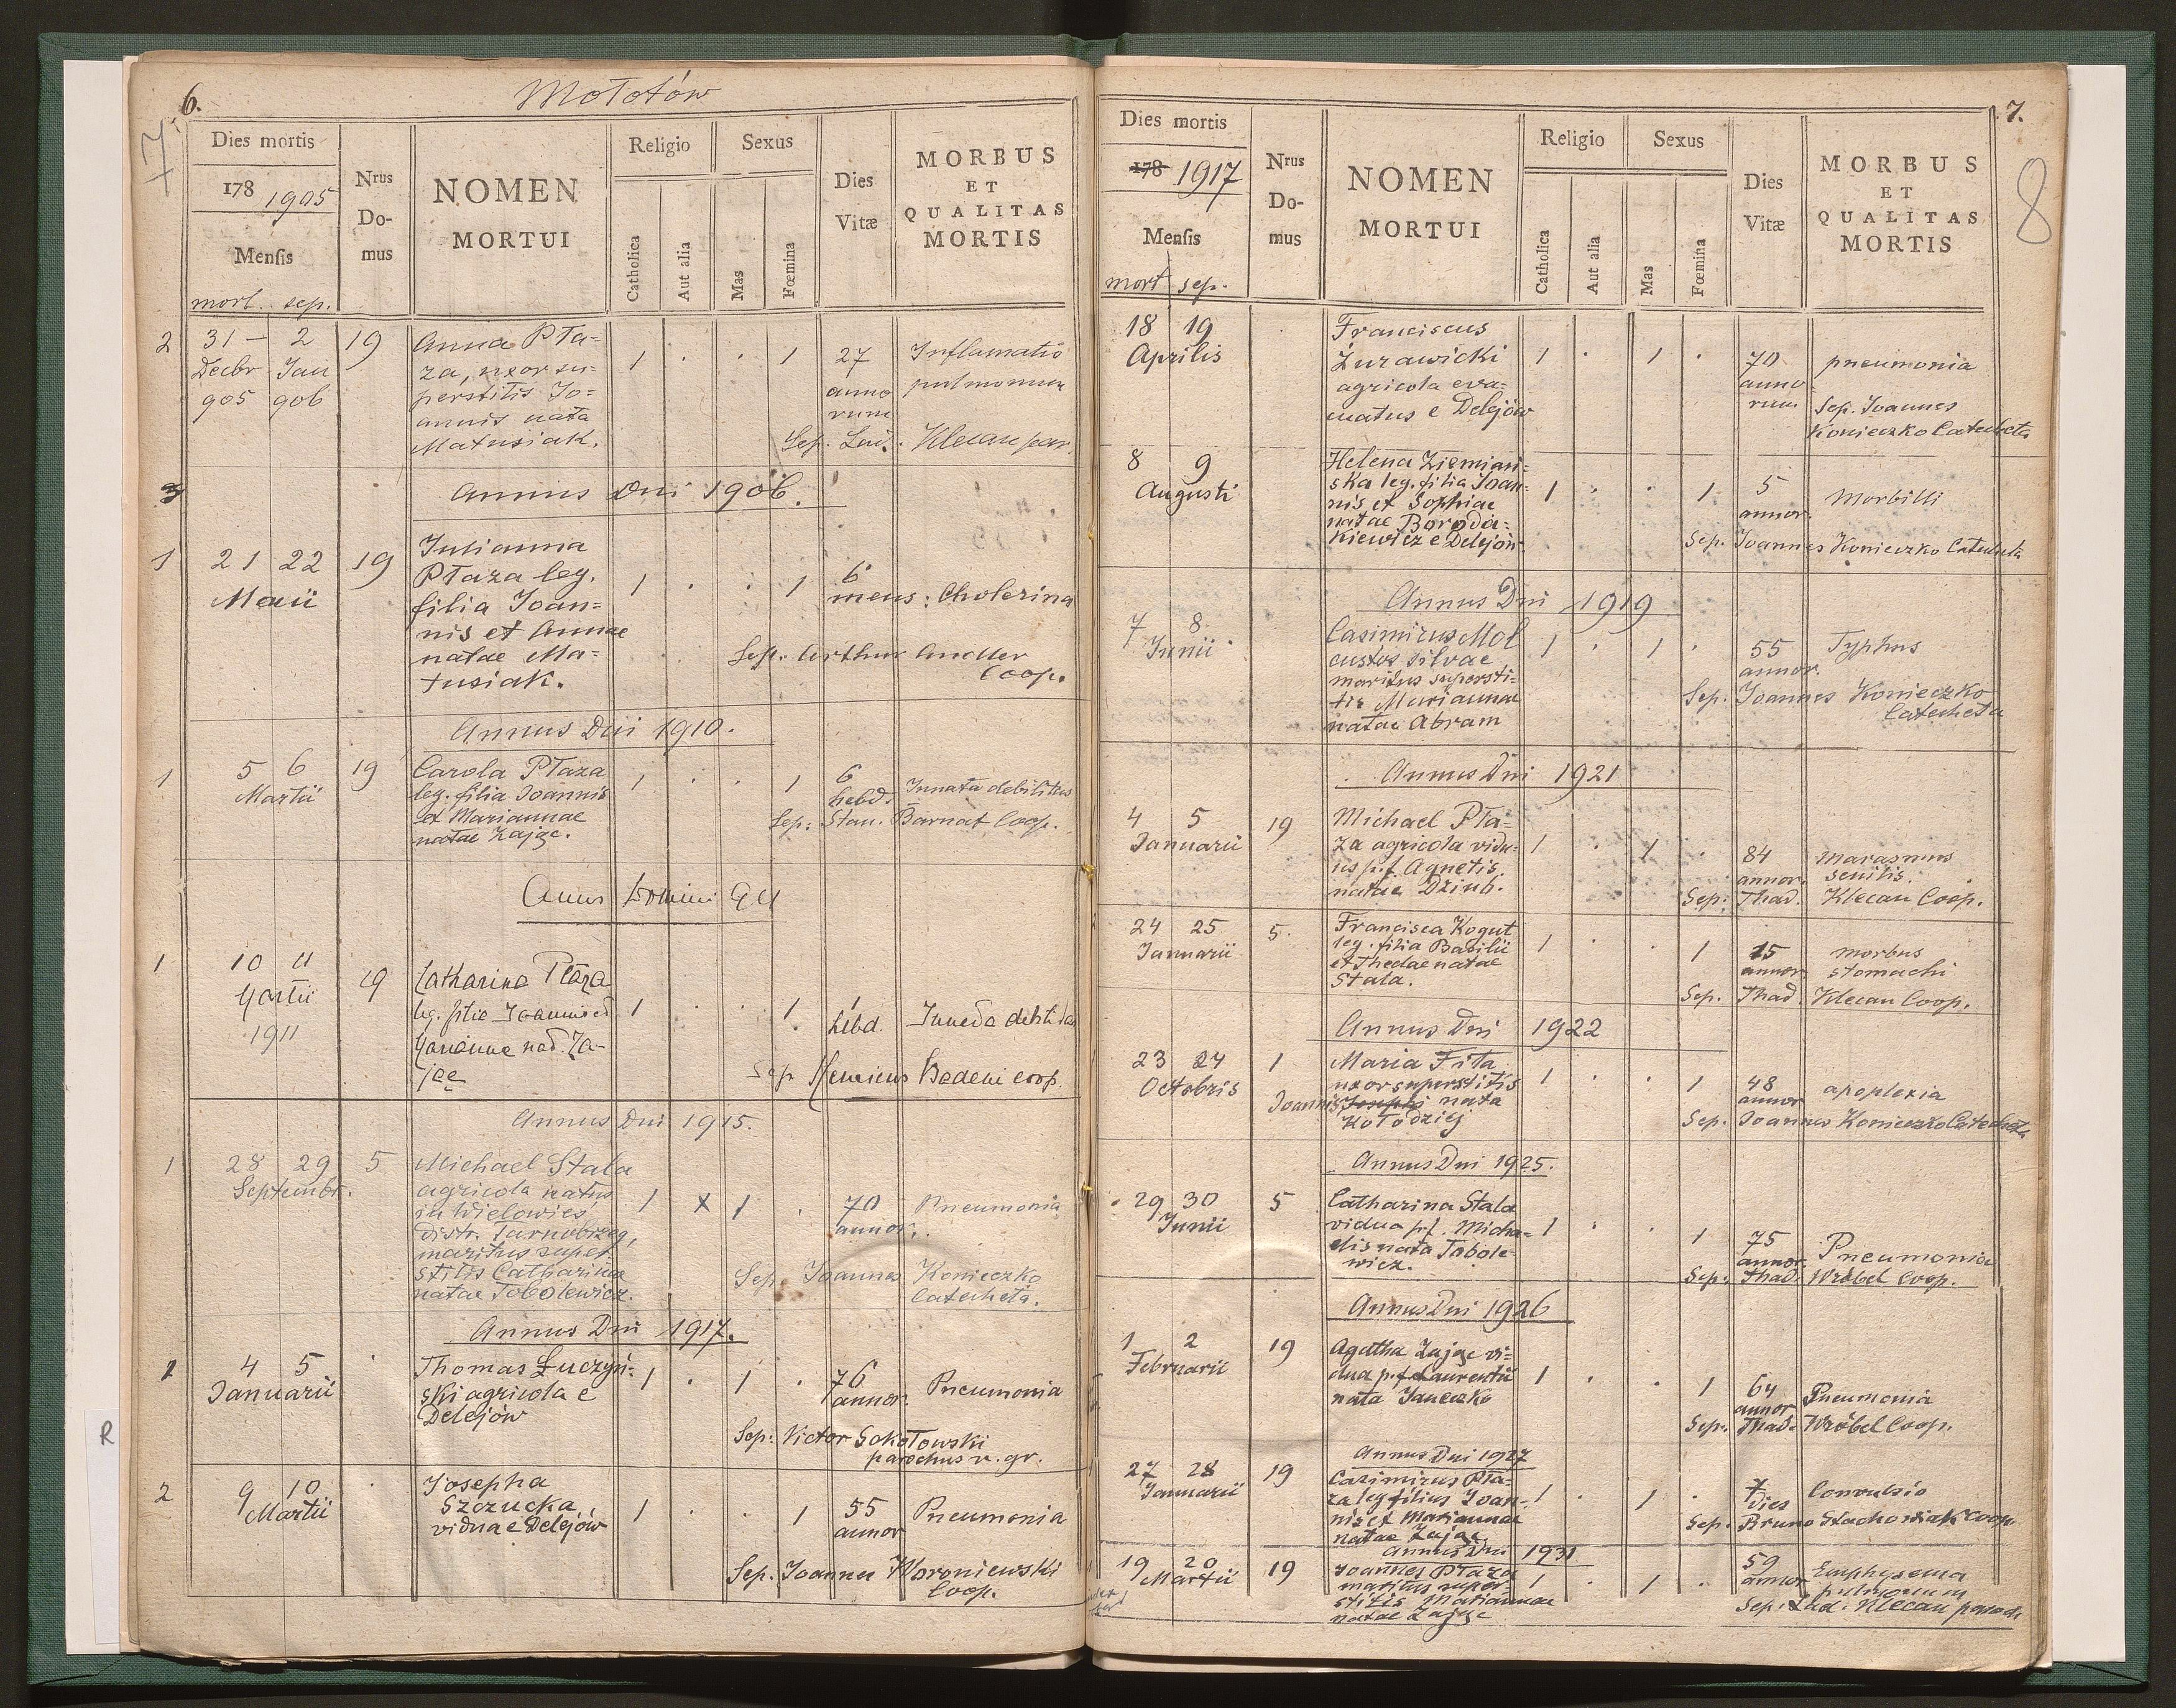 6.
Mołotów
7.
Dies mortis
178 1905
Mensis
mort. sep.
Nrus Do- mus
NOMEN
MORTUI
Religio
Catholica
Aut alia
Sexus
Mas
Fœmina
Dies
Vitæ
MORBUS
ET
QUALITAS
MORTIS
2 31 — 2 19 Anna Pła=
Decbr Jan za, uxor su= 1 . . 1 27 Inflamatio
905 906 perstitis Jo= anno pulmonum
annis nata rum
Matusiak. Sep. Lud. Klecan par.
3 Annus Dni 1906.
1 21 22 19 Julianna
Maii Płaza leg. 1 . . 1 6
filia Joan= mens: Cholerina
nis et Annae
natae Ma= Sep. Arthur Andler
tusiak. Coop.
Annus Dni 1910.
1 5 6 19 Carola Płaza 1 . . 1 6
Martii leg. filia Joannis hebd. Innata debilitas
et Mariannae Sep: Stan. Barnat Coop.
natae Zając.
Annus Domini 911
1 10 11 19 Catharina Płaza
Martii leg. filia Joannis et 1 . . 1
1911 Marianne nat. Za- hebd.
jąc Sep. Henricus Badeni coop.
Annus Dni 1915.
1 28 29 5 Michael Stala
Septembr. agricola natus 1 x 1 . 70 Pneumonia
in Wielowieś annor.
distr. Tarnobrzeg,
maritus super
stitis Catharinae Sep. Joannes Konieczko
natae Tobolewicz. Catecheta.
Annus Dni 1917.
1 4 5 . Thomas Łuczyń=
Januarii ski agricola e 1 . 1 . 76 Pneumonia
Delejów annor.
Sep: Victor Sokołowski
parochus r. gr.
2 9 10 . Josepha
Martii Szczucka, 1 . . 1 55 Pneumonia
vidua e Delejów annor
Sep. Joannes Woroniewski
Coop.
7.
8
Dies mortis
178 1917
Mensis
mort sep.
Nrus Do- mus
NOMEN
MORTUI
Religio
Catholica
Aut alia
Sexus
Mas
Fœmina
Dies
Vitæ
MORBUS
ET
QUALITAS
MORTIS
18 19 . Franciscus
Aprilis Żurawicki 1 . 1 . 70 pneumonia
agricola eva= anno=
cuatus e Delejów rum Sep. Joannes
Konieczko Catecheta
8 9 Helena Ziemiań=
Augusti ska leg. filia Joan= 1 . . 1 5 Morbilli
nis et Sophiae annor.
natae Boroda=
kiewicz e Delejów. Sep. Joannes Konieczko Catecheta
Annus Dni 1919
7 8 Casimirus Mol 1 . 1 . 55 Typhus
Junii custos silvae annor.
maritus supersti= Sep. Joannes Konieczko
tis Mariannae Catecheta
natae Abram
Annus Dni 1921
4 5 19 Michael Pła=
Januarii za agricola vidu= 1 . 1 . 84 marasmus
us p.f. Agnetis annor. senilis.
natae Dziub. Sep: Thad. Klecan Coop.
24 25 5. Francisca Kogut
Januarii leg. filia Basilii 1 . . 1 15 morbus
et Theclae natae annor stomachi
Stala. Sep. Thad. Klecan Coop.
Annus Dni 1922
23 24 1 Maria Fita
Octobris uxor superstitis 1 . . 1 48 apoplexia
Joannis Josephi nata annor
Kołodziej Sep. Joannes Konieczko Catecheta
Annus Dni 1925.
29 30 5 Catharina Stala
Junii vidua p.f. Micha= 1 . . 1 75 Pneumonia
elis nata Tobole= annor.
wicz. Sep: Thad. Wróbel Coop.
Annus Dni 1926
1 2 19 Agatha Zając vi=
Februarii dua p.f. Laurentii 1 . . 1 64 Pneumonia
nata Janeczko annor
Sep: Thad. Wróbel Coop.
Annus Dni 1927
27 28 19 Casimirus Pła=
Januarii za leg filius Joan= 1 . 1 . 7 Convulsio
nis et Mariannae dies
natae Zając Sep. Bruno Stachowiak Coop.
Annus Dni 1931
19 20 19 Joannes Płaza 59 Emphysema
Martii maritus super= 1 . 1 . annor pulmonum
stitis Mariannae Sep. Lud. Klecan paroch
natae Zając
R